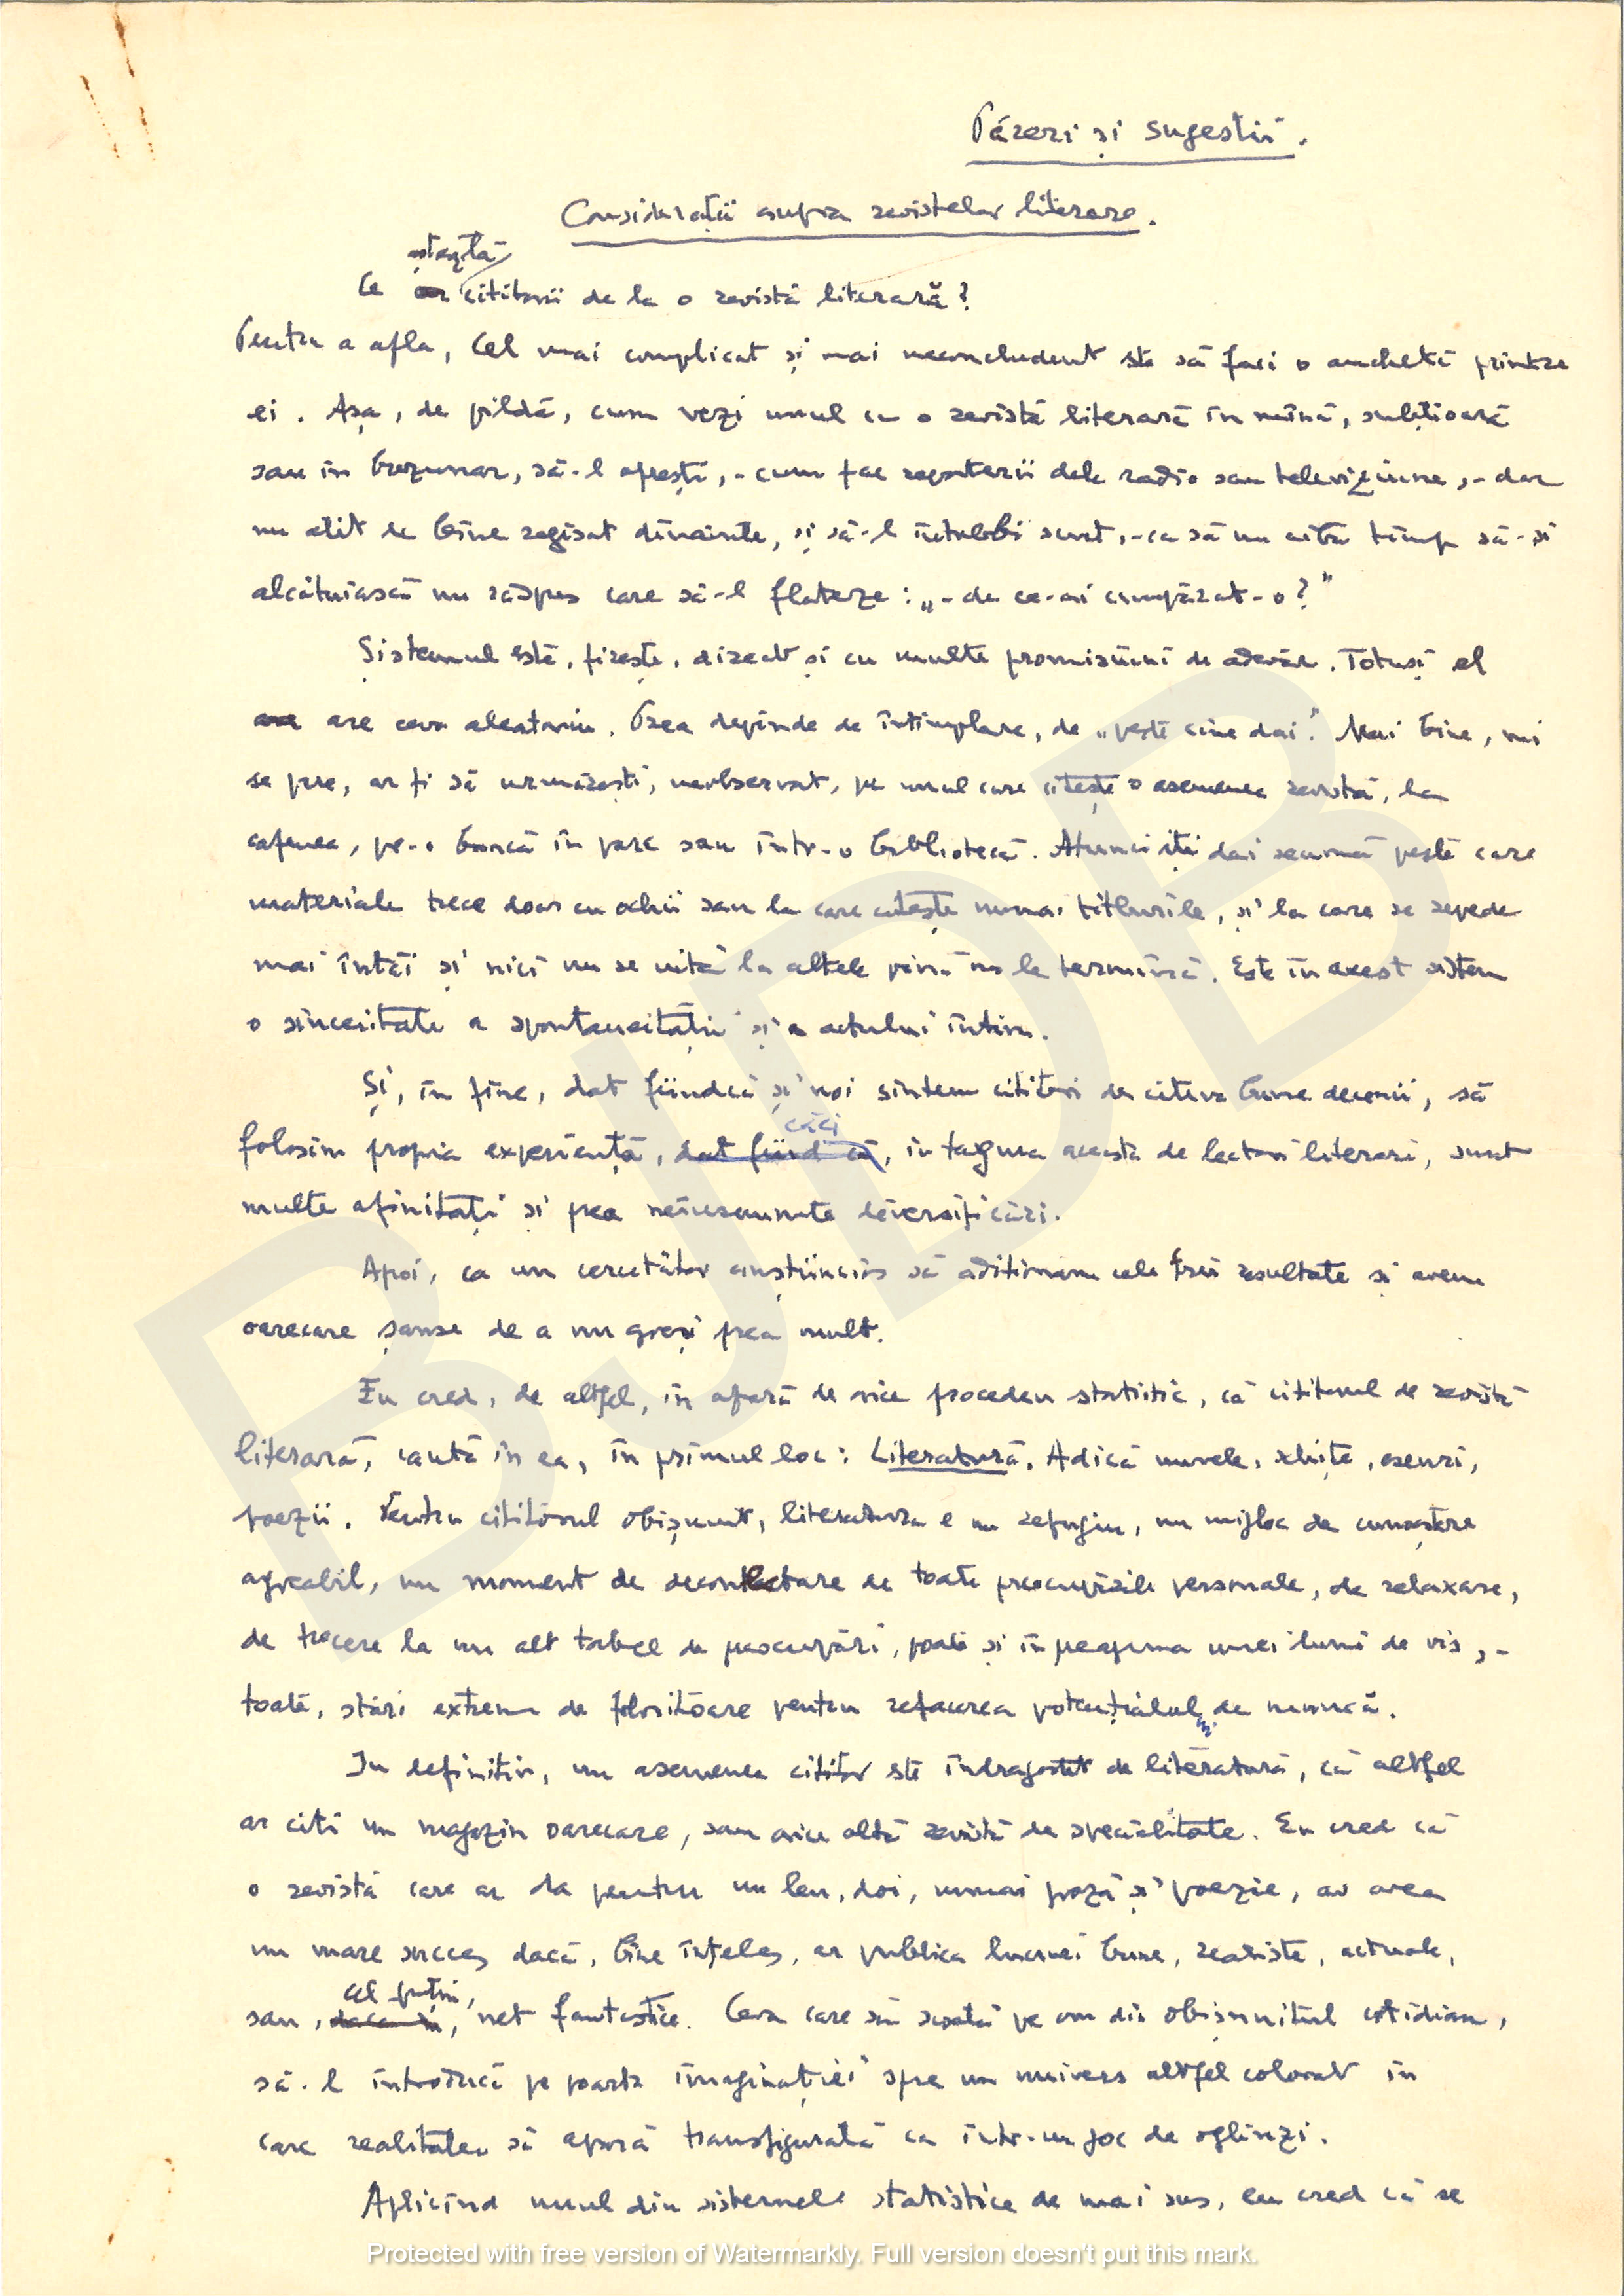 Păreri și sugestii.
Considerații asupra revistelor literare.
așteaptă
Ce cititorii de la o revistă literară?
Pentru a afla, cel mai complicat și mai neconcludent este să faci o anchetă printre
ei. Așa, de pildă, cum vezi unul cu o revistă literară în mînă, subțioară
sau în buzunar, să-l oprești, - cum fac reporterii dela radio sau televiziune, - dar
nu atît de bine regizat dinainte, și să-l întrebi scurt, - ca să nu aibă timp să-și
alcătuiască un răspuns care să-l flateze: „- de ce-ai cumpărat-o?"
Sistemul este, firește, direct și cu multe promisiuni de adevăr. Totuși el
are ceva aleatoriu. Prea depinde de întîmplare, de „peste cine dai". Mai bine, mi
se pare, ar fi să urmărești, neobservat, pe unul care citește o asemenea revistă, la
cafenea, pe-o bancă în parc sau într-o bibliotecă. Atunci îți dai seamă peste care
materiale trece doar cu ochii sau la care citește numai titlurile, și la care se repede
mai întîi și nici nu se uită la altele pînă nu le termină. Este în acest sistem
o sinceritate a spontaneității și a actului intim.
Și, în fine, dat fiindcă și noi sîntem cititori de cîteva bune decenii, să
căci
folosim propria experiență, dat fiind că, în tagma aceasta de lectori literari, sunt
multe afinități și prea neînsemnate diversificări.
Apoi, ca un cercetător conștiincios să adiționăm cele trei rezultate și avem
oarecare șanse de a nu greși prea mult.
Eu cred, de altfel, în afară de orice procedeu statistic, că cititorul de revistă
literară, caută în ea, în primul loc: Literatură. Adică nuvele, schițe, eseuri,
poezii. Pentru cititorul obișnuit, literatura e un refugiu, un mijloc de cunoaștere
agreabil, un moment de deconectare de toate preocupările personale, de relaxare,
de trecere la un alt tabel de preocupări, poate și în preajma unei lumi de vis, -
toate, stări extrem de folositoare pentru refacerea potențialului de muncă.
In definitiv, un asemenea cititor este îndrăgostit de literatură, că altfel
ar citi un magazin oarecare, sau orice altă revistă de specialitate. Eu cred că
o revistă care ar da pentru un leu, doi, numai proză și poezie, ar avea
un mare succes dacă, bine înțeles, ar publica lucruri bune, realiste, actuale,
cel puțin,
sau, net fantastice. Ceva care să scoată pe om din obișnuitul cotidian,
să-l introducă pe poarta imaginației spre un univers altfel colorat în
care realitatea să apară transfigurată ca într-un joc de oglinzi.
Aplicînd unul din sistemele statistice de mai sus, eu cred că se
Protected with free version of Watermarkly. Full version doesn't put this mark.
BJDB